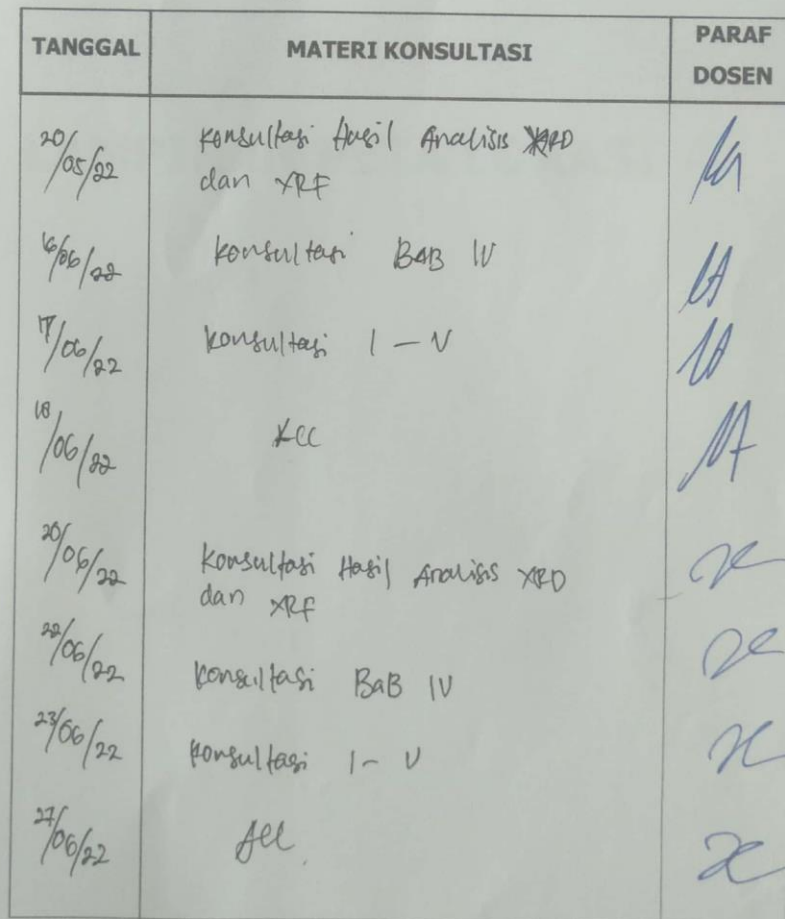 TANGGAL MATERI KONSULTASI PARAF
DOSEN
20/05/22 Konsultasi Hasil Analisis XRD
dan XRF
16/06/22 Konsultasi BAB IV
17/06/22 Konsultasi I - V
18/06/22 Acc
20/06/22 Konsultasi Hasil Analisis XRD
dan XRF
22/06/22 Konsultasi BaB IV
23/06/22 Konsultasi I - V
27/06/22 Acc